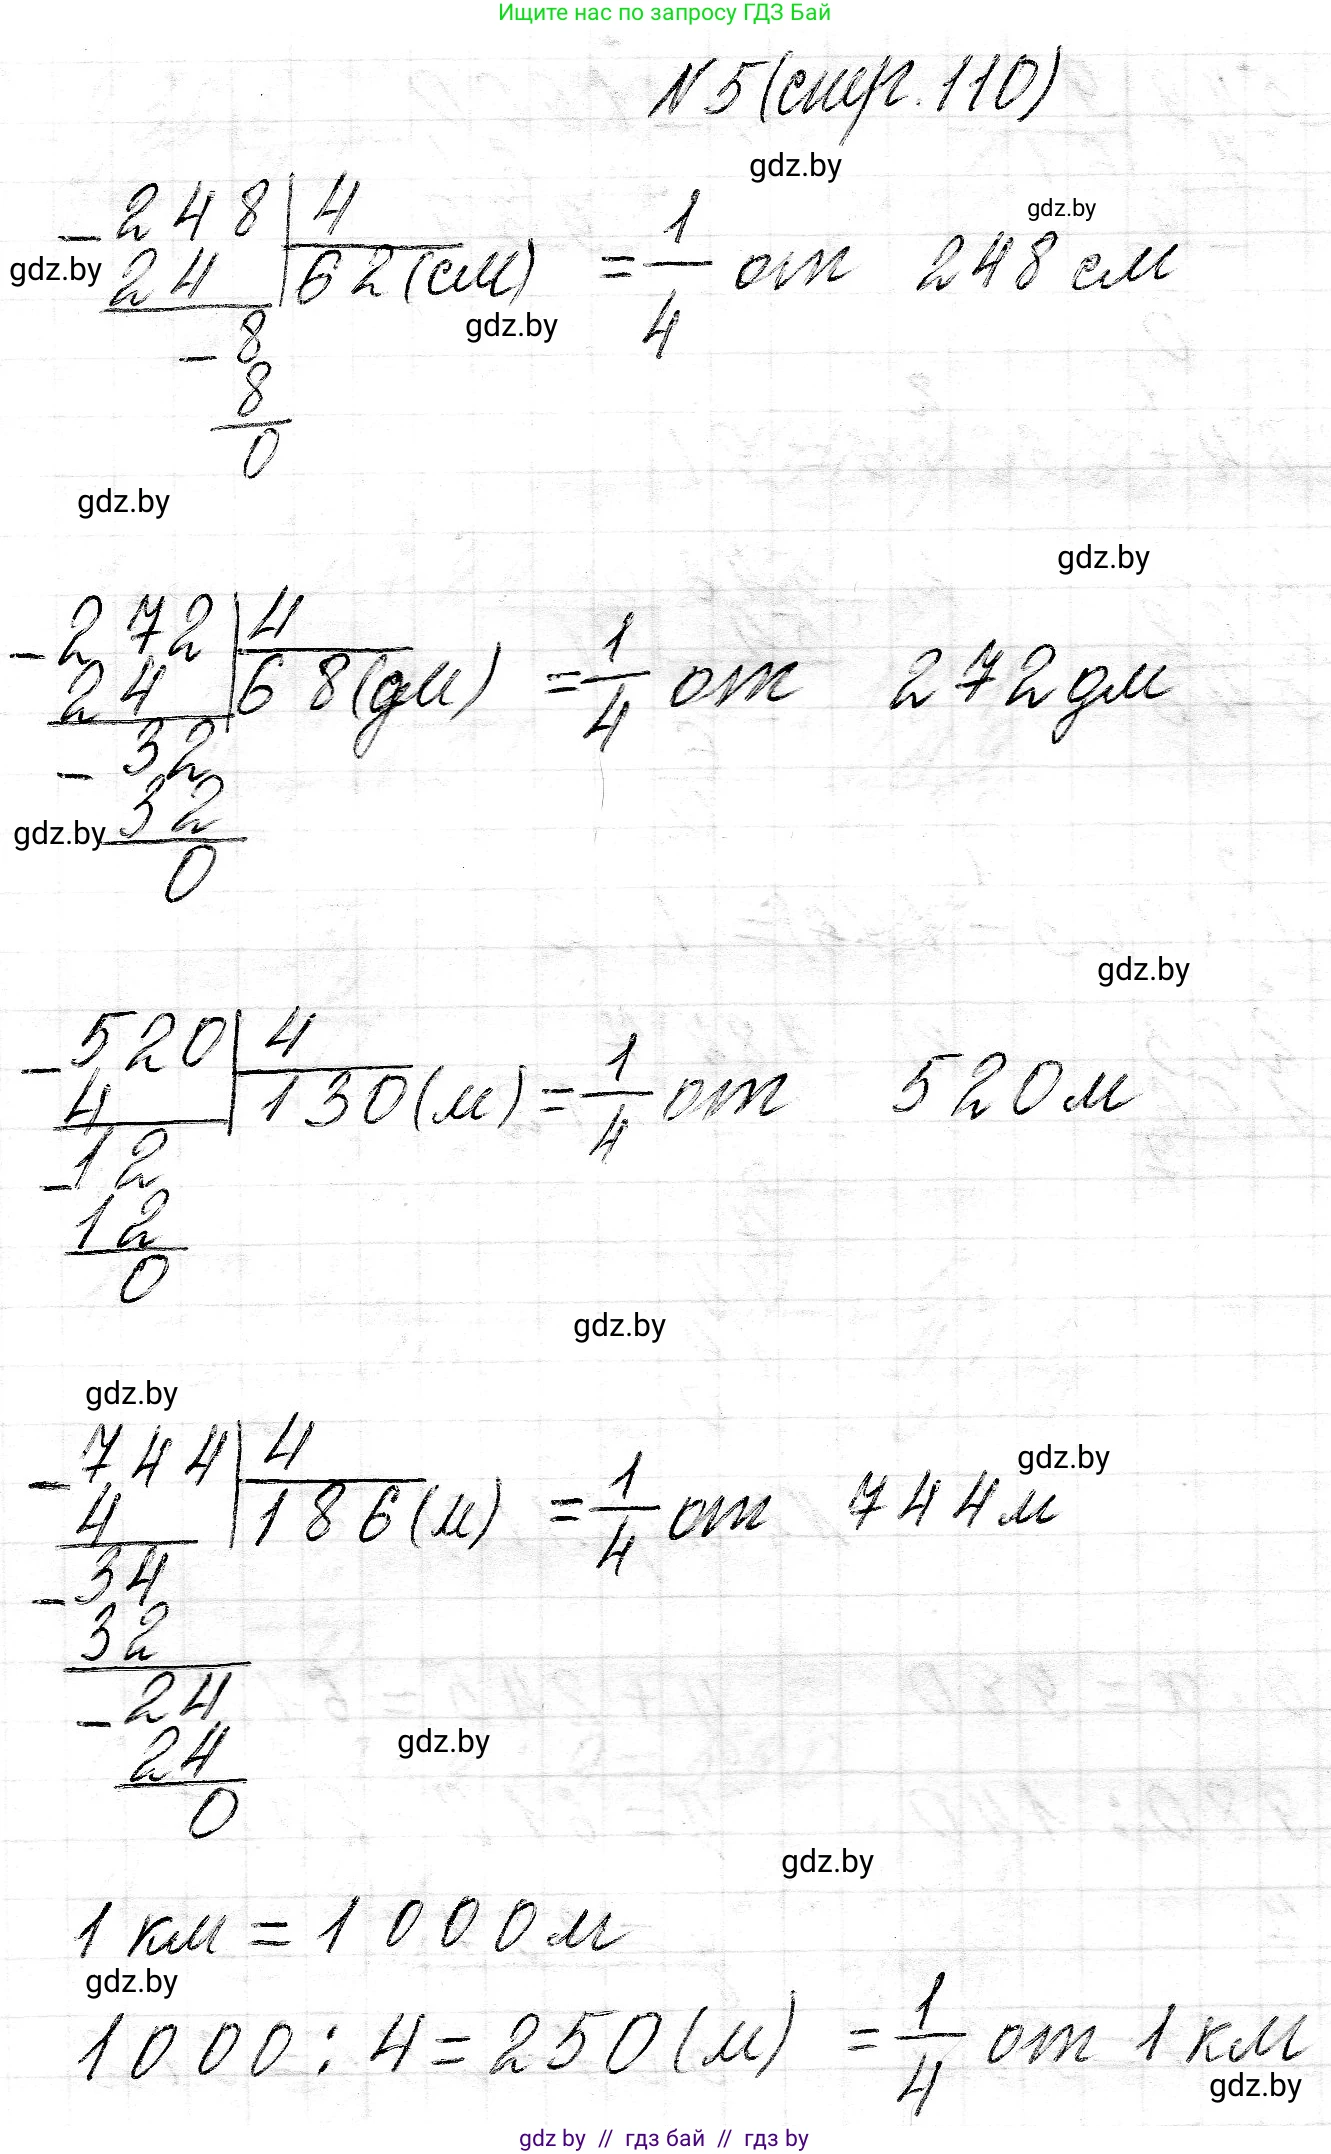 Ищите нас по запросу ГДЗ Бай
N 5 (стр. 110)
gdz.by
gdz.by
− 248 | 4
gdz.by 24 | 62 (см) = 1/4 от 248 см
gdz.by
− 8
8
0
gdz.by
gdz.by
− 272 | 4
24 | 68 (дм) = 1/4 от 272 дм
− 32
gdz.by 32
0
gdz.by
− 520 | 4
4 | 130 (м) = 1/4 от 520 м
− 12
12
0
gdz.by
gdz.by
− 744 | 4
gdz.by
4 | 186 (м) = 1/4 от 744 м
− 34
32
− 24
gdz.by
24
0
gdz.by
1 км = 1000 м
gdz.by
1000 : 4 = 250 (м) = 1/4 от 1 км
gdz.by
gdz by // гдз бай // гдз by